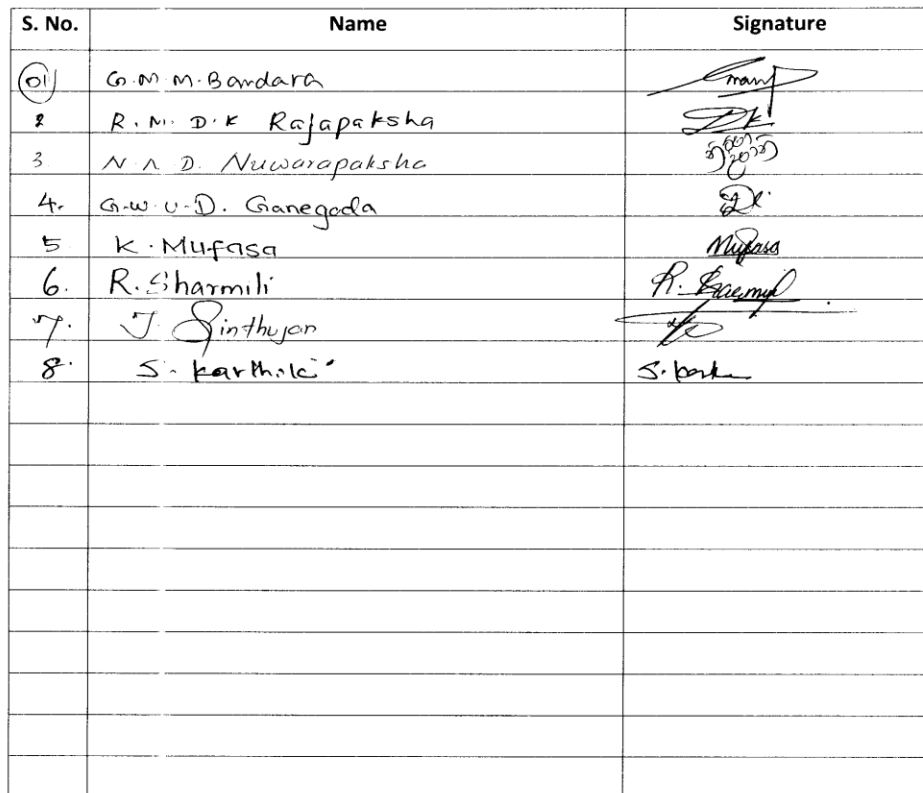 S. No. Name Signature
01 G.M.M.Bandara
2 R.M.D.K Rajapaksha DK
3 N.A.D. Nuwarapaksha
4. G.W.U.D. Ganegoda
5 K.Mufasa Mufasa
6. R.Sharmili R.
7. J Sinthujan
8. S.Karthiki S.